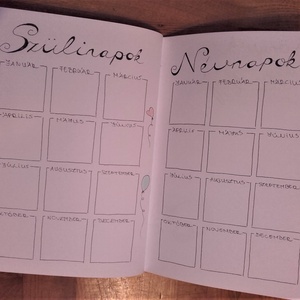 Szülinapok
JANUÁR FEBRUÁR MÁRCIUS
ÁPRILIS MÁJUS JÚNIUS
JÚLIUS AUGUSZTUS SZEPTEMBER
OKTÓBER NOVEMBER DECEMBER
Névnapok
JANUÁR FEBRUÁR MÁRCIUS
ÁPRILIS MÁJUS JÚNIUS
JÚLIUS AUGUSZTUS SZEPTEMBER
OKTÓBER NOVEMBER DECEMBER